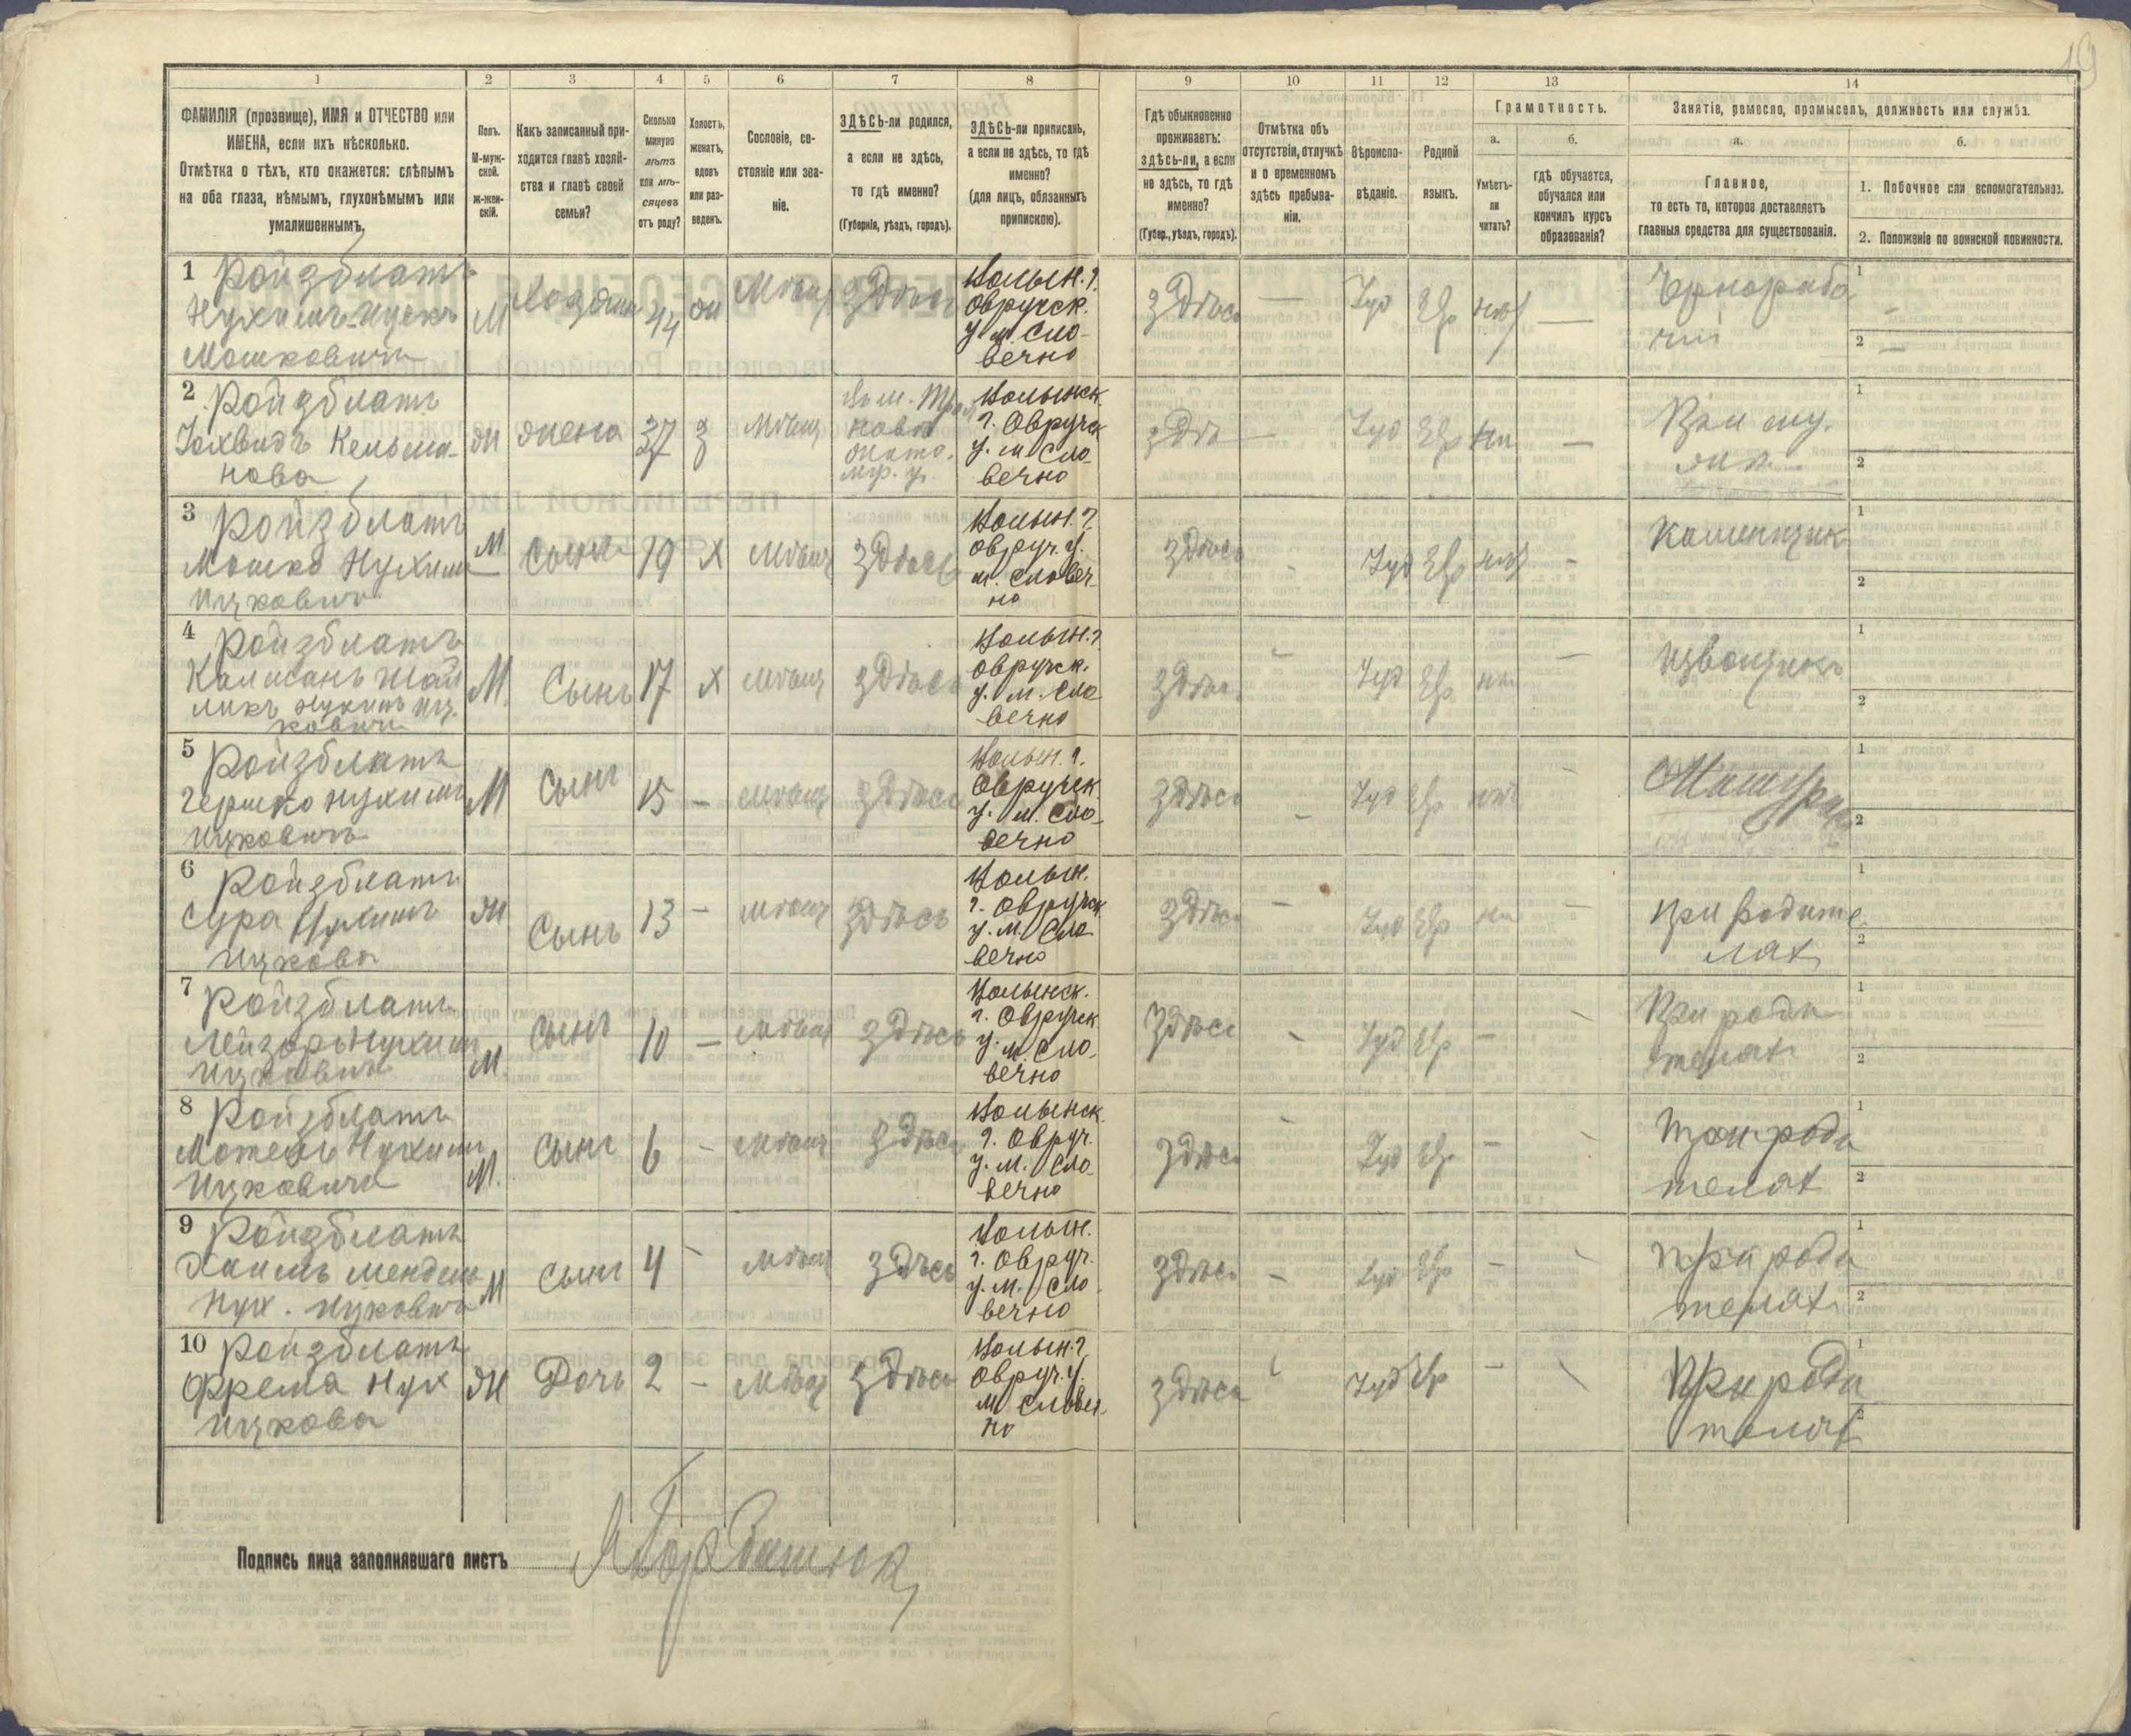 19
1 2 3 4 5 6 7 8 9 10 11 12 13 14
ФАМИЛІЯ (прозвище), ИМЯ и ОТЧЕСТВО или
ИМЕНА, если ихъ нѣсколько.
Отмѣтка о тѣхъ, кто окажется: слѣпымъ
на оба глаза, нѣмымъ, глухонѣмымъ или
умалишеннымъ.
Полъ.
М-муж-
ской.
Ж-жен-
скій.
Какъ записанный при-
ходится главѣ хозяй-
ства и главѣ своей
семьи?
Сколько
минуло
лѣтъ
или мѣ-
сяцевъ
отъ роду?
Холостъ,
женатъ,
вдовъ
или раз-
веденъ.
Сословіе, со-
стояніе или зва-
ніе.
ЗДѢСЬ-ли родился,
а если не здѣсь,
то гдѣ именно?
(Губернія, уѣздъ, городъ).
ЗДѢСЬ-ли приписанъ,
а если не здѣсь, то гдѣ
именно?
(для лицъ, обязанныхъ
припискою).
Гдѣ обыкновенно
проживаетъ:
здѣсь-ли, а если
не здѣсь, то гдѣ
именно?
(Губер., уѣздъ, городъ).
Отмѣтка объ
отсутствіи, отлучкѣ
и о временномъ
здѣсь пребыва-
ніи.
Вѣроиспо-
вѣданіе.
Родной
языкъ.
Грамотность.
а.
Умѣетъ-
ли
читать?
б.
гдѣ обучается,
обучался или
кончилъ курсъ
образованія?
Занятіе, ремесло, промыселъ, должность или служба.
а.
Главное,
то есть то, которое доставляетъ
главныя средства для существованія.
б.
1. Побочное или вспомогательное.
2. Положеніе по воинской повинности.
1 Ройзблатъ
Нухимъ-Ицко
Мошковичъ
М
Хозяинъ
44
ж
Мѣщ
здѣсь
Волын. г.
Овручск.
у. м. Сло-
вечно
здѣсь
—
Іуд
Евр
нѣт
—
Чернорабо
чій
1 -
2 —
2 Ройзблатъ
Кельма-
нова
ж
жена
37
з
Мѣщ
Волынск.
г. Овручск
у. м Сло-
вечно
здѣ
—
Іуд
Евр
нѣ
—
При му.
1
2
3 Ройзблатъ
Мошко Нухимъ
Ицковичъ
М
Сынъ
19
Х
Мѣщ
здѣсь
Волын. г.
Овруч. у.
м. Словеч-
но
здѣсь
-
Іуд
Евр
нѣт
-
Каменщик
1
2
4 Ройзблатъ
Калманъ
Нухимъ Иц-
ковичъ
М.
Сынъ
17
х
Мѣщ
здѣсь
Волын. г
Овручск.
у. м. Сло-
вечно
здѣсь
Іуд
Евр
нѣ
—
Извощикъ
1
2
5 Ройзблатъ
Гершко Нухимъ
Ицковичъ
М
Сынъ
15
-
Мѣщ
здѣсь
Волын. г.
Овручск.
у. м. Сло-
вечно
здѣсь
-
Іуд
Евр
нѣт
-
1
2
6 Ройзблатъ
Сура Нухимъ
Ицкова
ж
Сынъ
13
-
Мѣщ
здѣсь
Волын.
г. Овручск
у. м. Сло-
вечно
здѣсь
-
Іуд
Евр
нѣ
-
при родите
лях
1
2
7 Ройзблатъ
Лейзоръ Нухим
Ицкович
М.
Сынъ
10
-
Мѣщ
здѣсь
Волынск.
г. Овручск
у. м. Сло-
вечно
здѣсь
-
Іуд
Евр
-
-
При роди
телях
1
2
8 Ройзблатъ
Мотель Нухим
Ицкович
М.
Сынъ
6
-
Мѣщ
здѣсь
Волынск
г. Овруч.
у. м. Сло-
вечно
здѣсь
-
Іуд
Евр
-
-
При роди
телях
1
2
9 Ройзблатъ
Хаимъ Мендель
Нух. Ицкович
М
Сынъ
4
-
Мѣщ
здѣсь
Волын.
г. Овруч.
у. м. Сло-
вечно
здѣсь
-
Іуд
Евр
-
-
при роди
телях
1
2
10 Ройзблатъ
Фрема Нух
Ицкова
Ж
Дочь
2
-
Мѣщ
здѣсь
Волын. г.
Овруч. у.
м Словеч-
но
здѣсь
Іуд
Евр
-
-
При роди
телях
1
2
Подпись лица заполнявшаго листъ